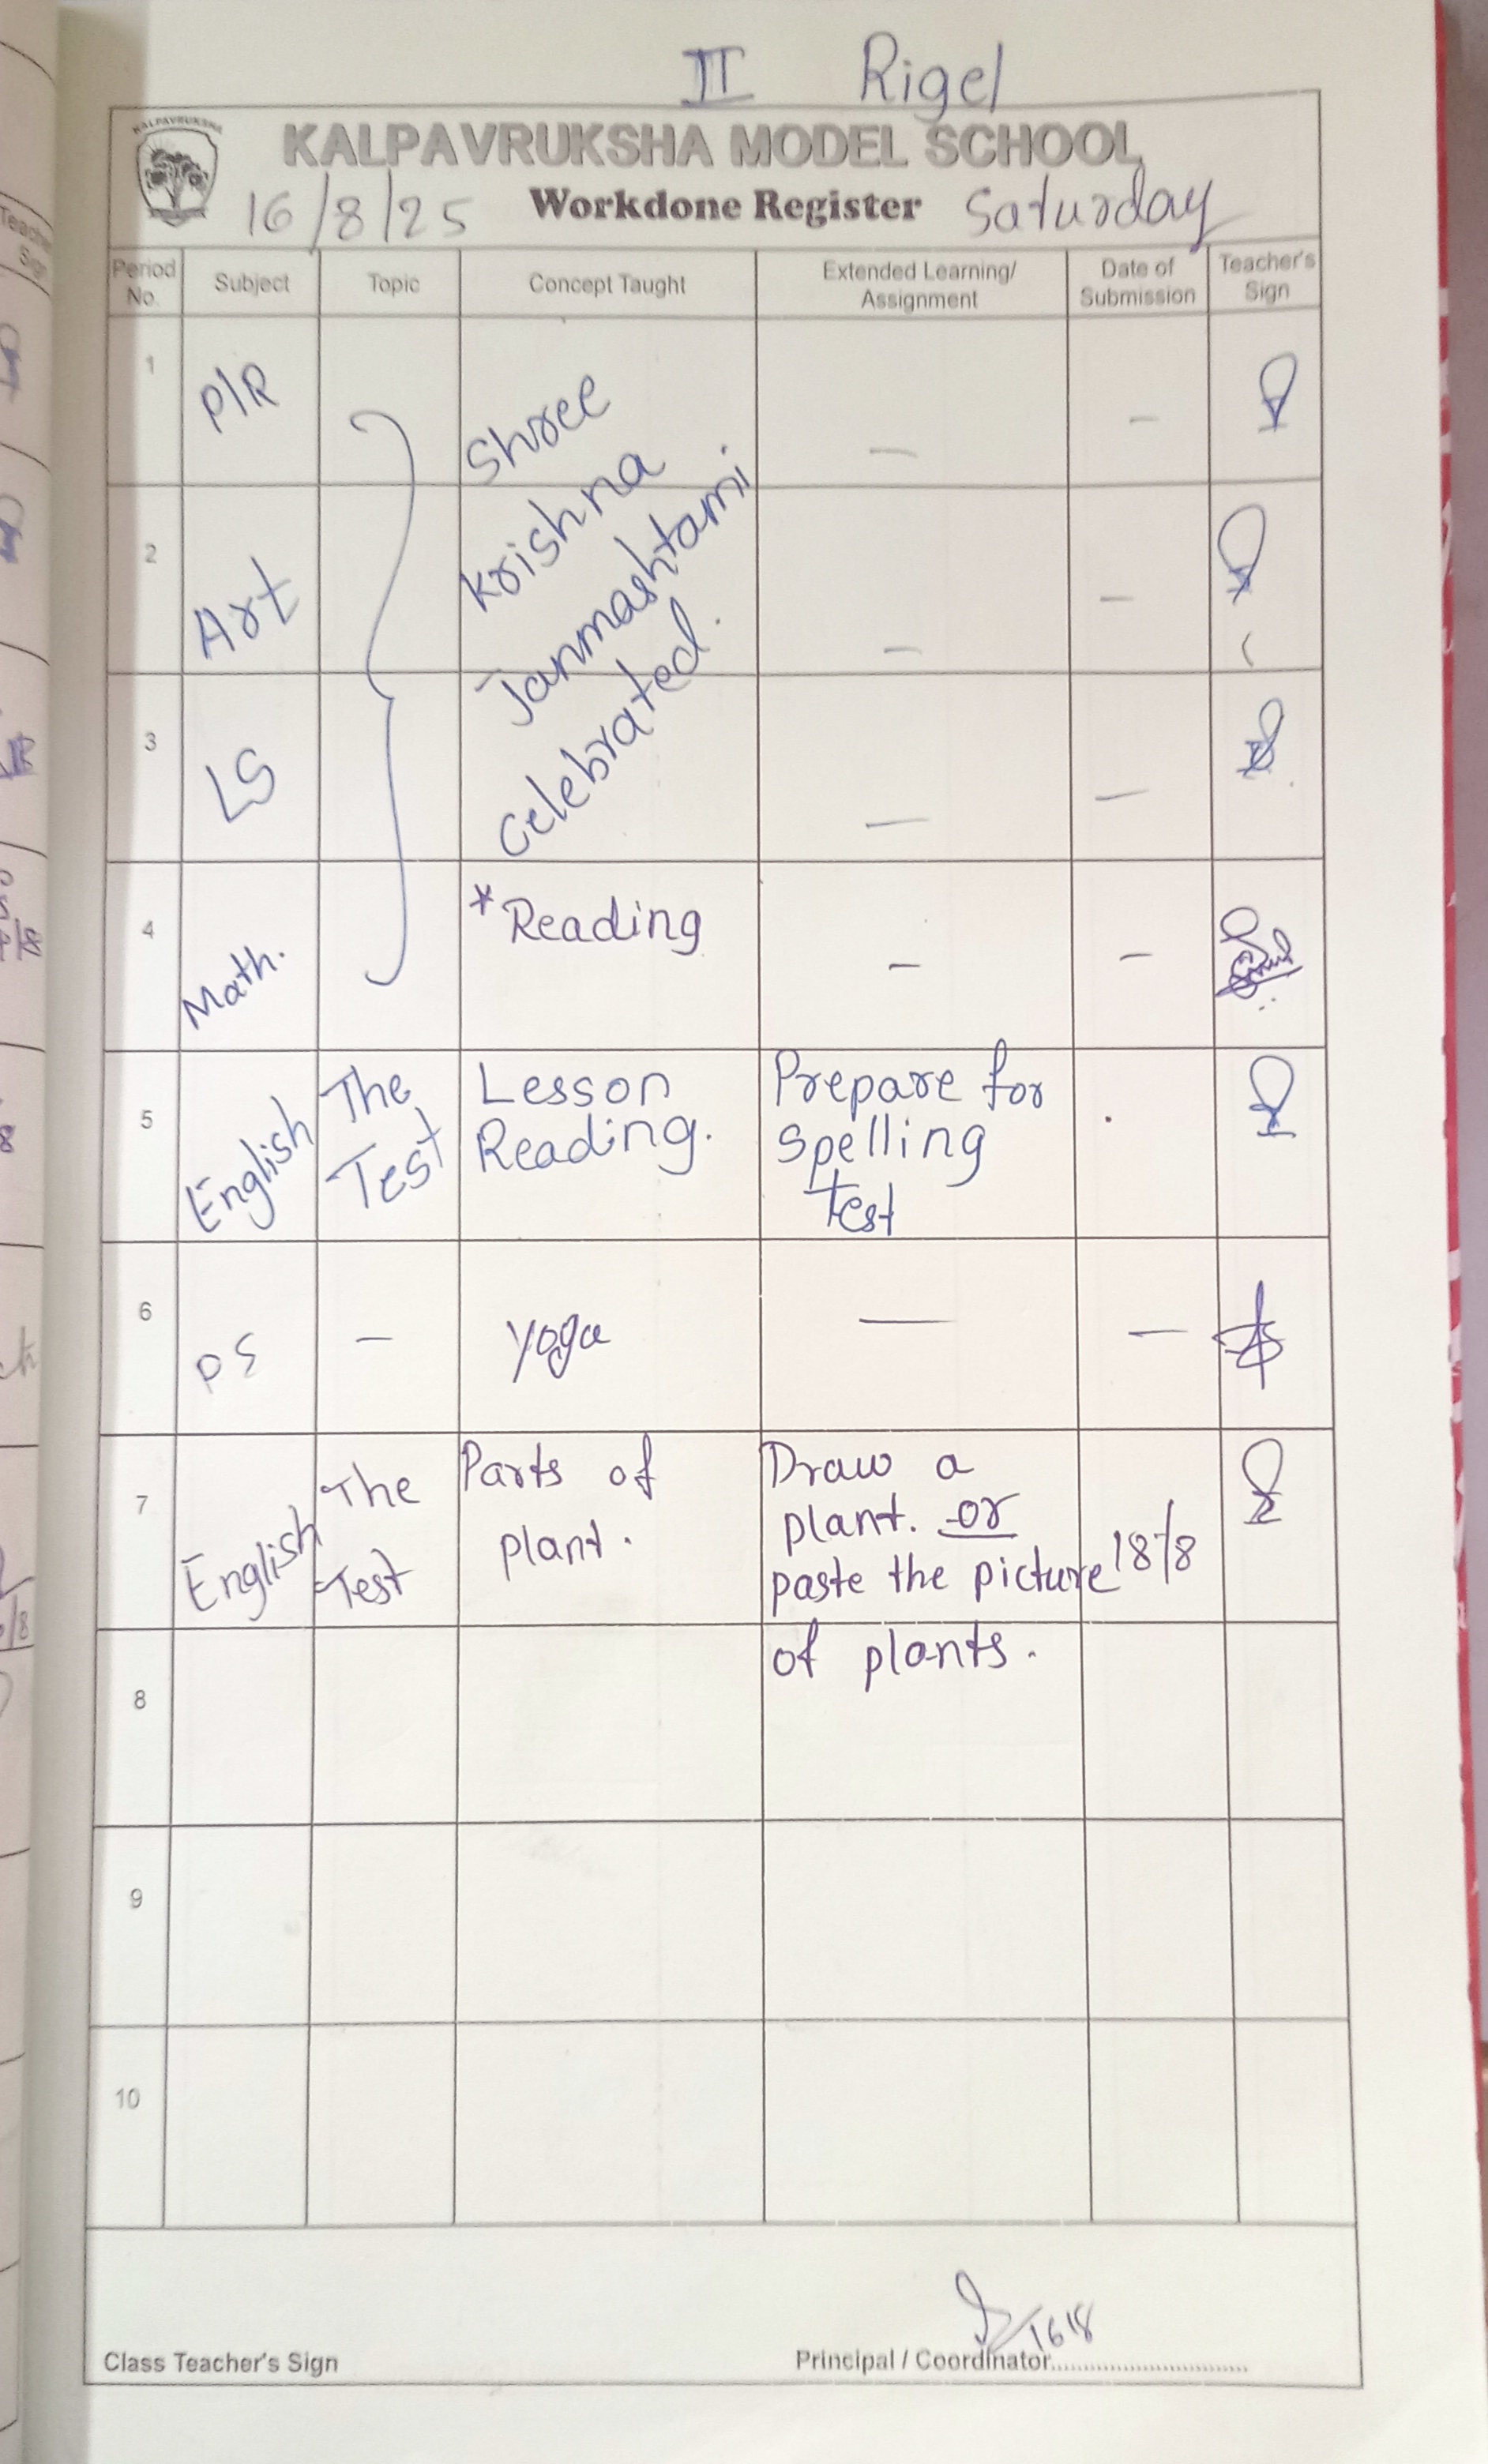 II Rigel
KALPAVRUKSHA
KALPAVRUKSHA MODEL SCHOOL
16/8/25 Workdone Register Saturday
Period No. Subject Topic Concept Taught Extended Learning/ Assignment Date of Submission Teacher's Sign
1 P/R — —
Shree
Krishna
Janmashtami
Celebrated.
2 Art — —
3 LS — —
4 Math. * Reading — —
5 English The Test Lesson Reading. Prepare for Spelling Test
6 PE — Yoga — —
7 English The Test Parts of plant. Draw a plant. or paste the picture of plants. 18/8
8
9
10
16/8
Class Teacher's Sign Principal / Coordinator..............................